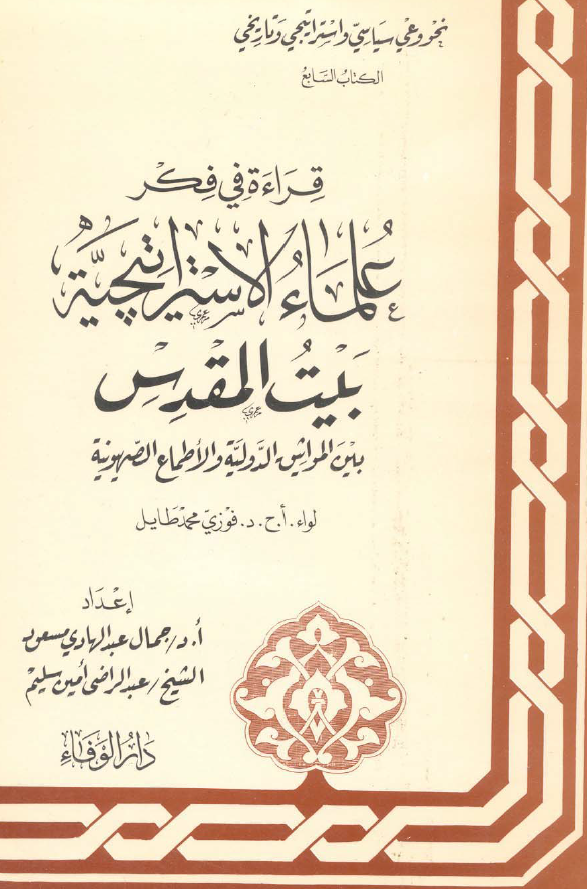 نحو وعي سياسي واستراتيجي وتاريخي
الكتاب السابع
قراءة في فكر
علماء الاستراتيچية
بيت المقدس
بين المواثيق الدولية والأطماع الصهيونية
لواء. أ. ح. د. فوزي محمد طايل
إعداد
أ.د/ جمال عبد الهادي مسعود
الشيخ/ عبد الراضي أمين سليم
دار الوفاء